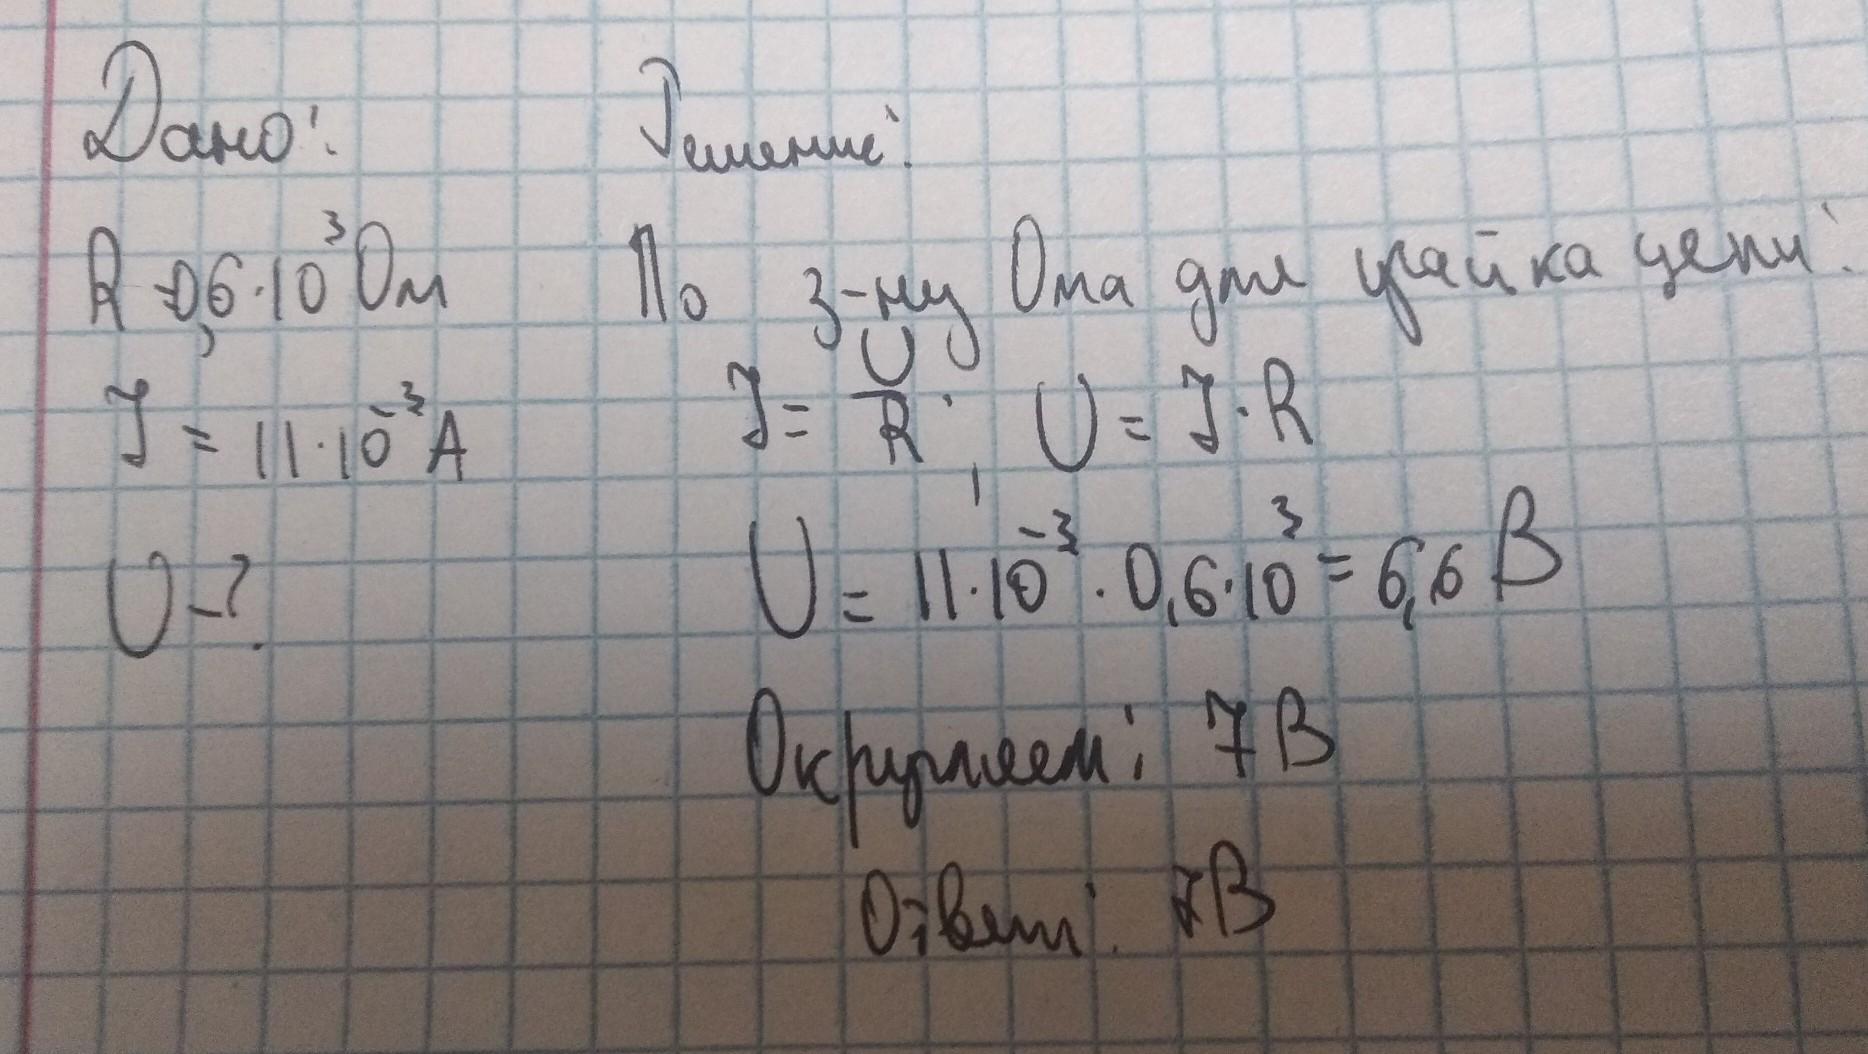 Дано:
R = 0,6·10³ Ом
I = 11·10⁻³ А
U - ?
Решение:
По з-ну Ома для уч-ка цепи:
I = U/R; U = I·R
U = 11·10⁻³ · 0,6·10³ = 6,6 В
Округляем: 7 В
Ответ: 7В